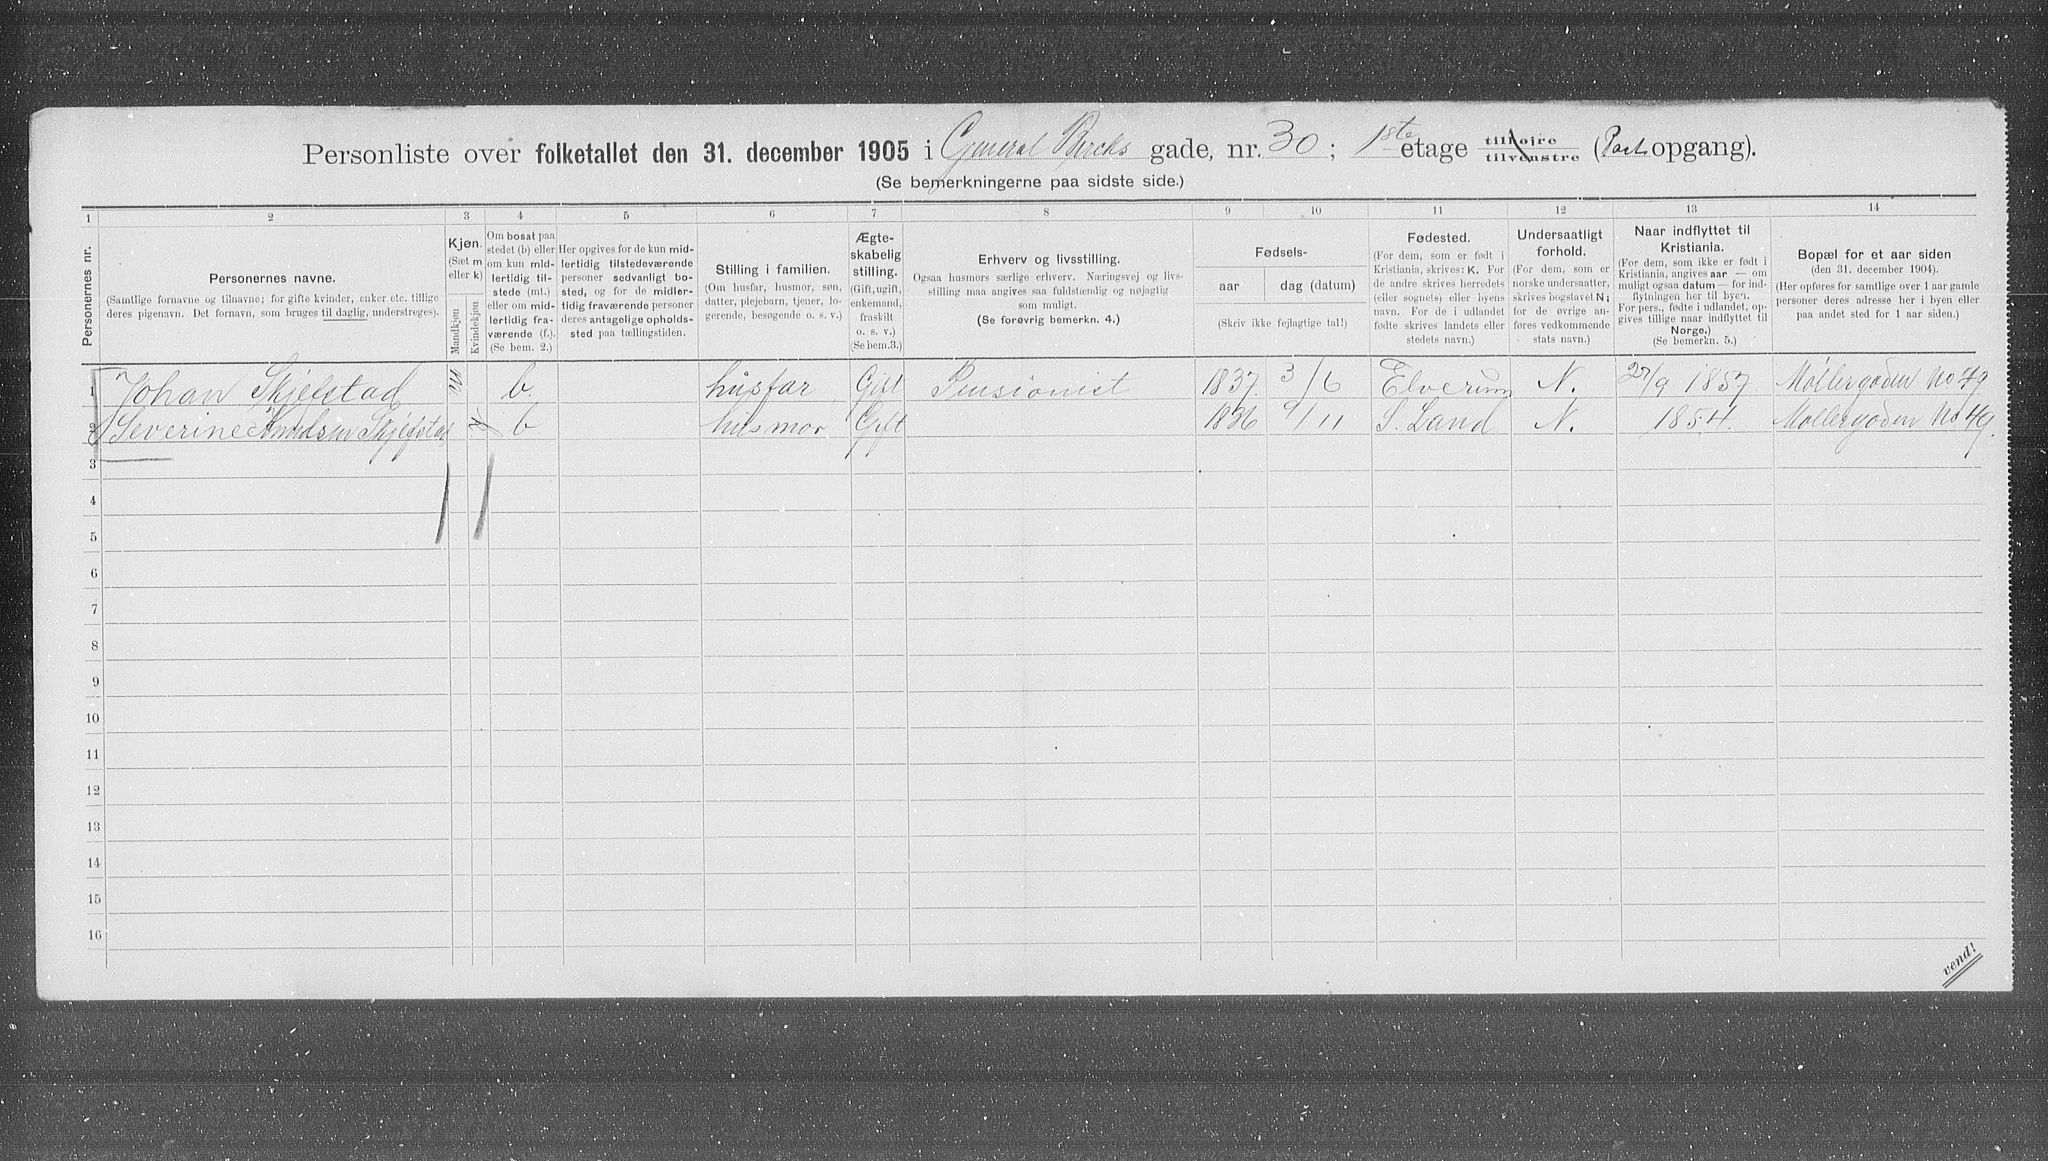 Personliste over folketallet den 31. december 1905 i General Bircks gade, nr. 30; 1ste etage tilhøjre tilvenstre (Port opgang).
(Se bemerkningerne paa sidste side.)
1 2 3 4 5 6 7 8 9 10 11 12 13 14
Personernes nr.
Personernes navne.
(Samtlige fornavne og tilnavne; for gifte kvinder, enker etc. tillige
deres pigenavn. Det fornavn, som bruges til daglig, understreges).
Kjøn.
(Sæt m
eller k)
Mandkjøn
Kvindekjøn
Om bosat paa
stedet (b) eller
om kun mid-
lertidig til-
stede (mt.)
eller om mid-
lertidig fra-
værende (f.).
(Se bem. 2.)
Her opgives for de kun mid-
lertidig tilstedeværende
personer sedvanligt bo-
sted, og for de midler-
tidig fraværende personer
deres antagelige opholds-
sted paa tællingstiden.
Stilling i familien.
(Om husfar, husmor, søn,
datter, plejebarn, tjener, lo-
gerende, besøgende o. s. v.)
Ægte-
skabelig
stilling.
(Gift, ugift,
enkemand,
fraskilt
o. s. v.)
(Se bem.3.)
Erhverv og livsstilling.
Ogsaa husmors særlige erhverv. Næringsvej og livs-
stilling maa angives saa fuldstændig og nøjagtig
som muligt.
(Se forøvrig bemerkn. 4.)
Fødsels-
aar dag (datum)
(Skriv ikke fejlagtige tal!)
Fødested.
(For dem, som er født i
Kristiania, skrives: K. For
de andre skrives herredets
(eller sognets) eller byens
navn. For de i udlandet
fødte skrives landets eller
stedets navn.)
Undersaatligt
forhold.
(For dem, som er
norske undersaatter,
skrives bogstavet N;
for de øvrige an-
føres vedkommende
stats navn.)
Naar indflyttet til
Kristiania.
(For dem, som ikke er født i
Kristiania, angives aar — om
muligt ogsaa datum — for ind-
flytningen her til byen.
For pers., fødte i udlandet, op-
gives tillige naar indflyttet til
Norge.)
(Se bemerkn. 5.)
Bopæl for et aar siden
(den 31. december 1904).
(Her opføres for samtlige over 1 aar gamle
personer deres adresse her i byen eller
paa andet sted for 1 aar siden.)
1 Johan Skjefstad m b. husfar Gift Pensionist 1837. 3/6 Elverum N. 27/9 1857 Møllergaden No 49
2 Severine Knudsen Skjefstad k b husmor Gift 1836 9/11 S. Land N. 1854. Møllergaden No 49.
3
4
5
6
7
8
9
10
11
12
13
14
15
16
vend!